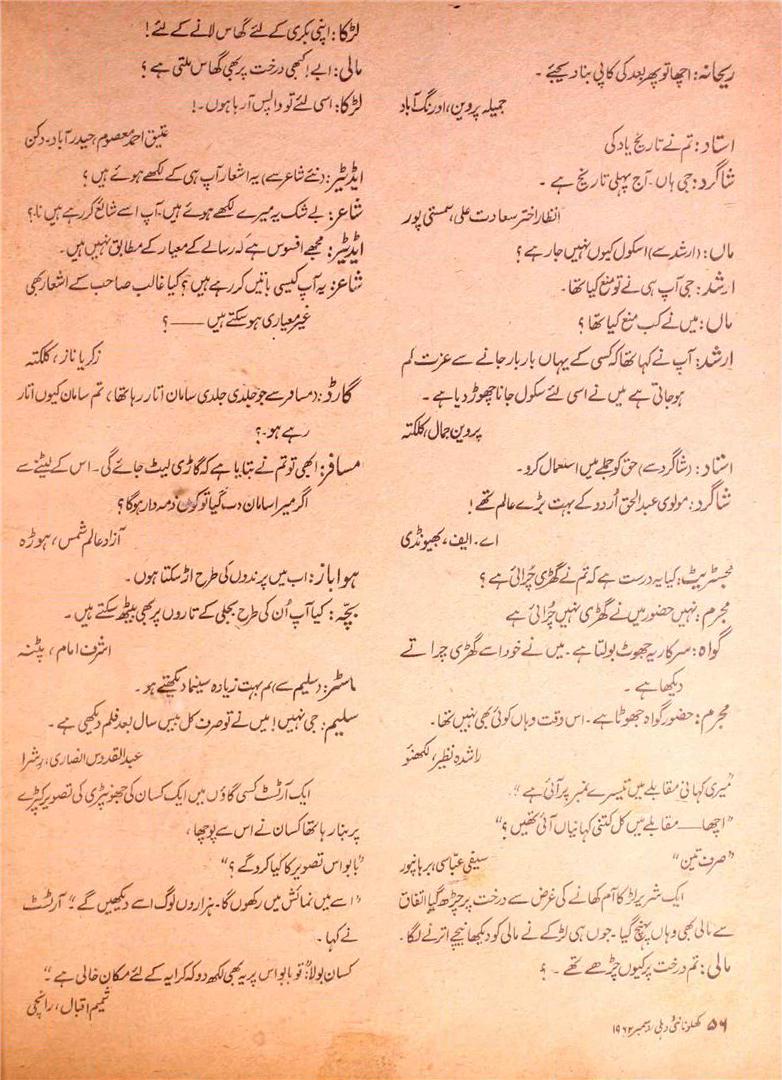 ریحانہ: اچھا تو پھر بعد کی کاپی بنا دیجئے۔
جمیلہ پروین، اورنگ آباد
استاد: تم نے تاریخ یاد کی
شاگرد: جی ہاں۔ آج پہلی تاریخ ہے۔
انظار اختر سعادت علی، سمستی پور
ماں: (ارشد سے) اسکول کیوں نہیں جا رہے ہو؟
ارشد: جی آپ ہی نے تو منع کیا تھا۔
ماں: میں نے کب منع کیا تھا؟
ارشد: آپ نے کہا تھا کہ کسی کے یہاں بار بار جانے سے عزت کم
ہو جاتی ہے میں نے اسی لئے سکول جانا چھوڑ دیا ہے۔
پروین جمال، کلکتہ
استاد: (شاگرد سے) حق کو جملے میں استعمال کرو۔
شاگرد: مولوی عبدالحق اُردو کے بہت بڑے عالم تھے!
اے۔ ایف، بھیونڈی
مجسٹریٹ: کیا یہ درست ہے کہ تم نے گھڑی چُرائی ہے؟
مجرم: نہیں حضور میں نے گھڑی نہیں چُرائی ہے
گواہ: سرکار یہ جھوٹ بولتا ہے۔ میں نے خود اسے گھڑی چراتے
دیکھا ہے۔
مجرم: حضور گواہ جھوٹا ہے۔ اس وقت وہاں کوئی بھی نہیں تھا۔
راشدہ نظر، لکھنؤ
"میری کہانی مقابلے میں تیسرے نمبر پر آئی ہے"۔
"اچھا —— مقابلے میں کل کتنی کہانیاں آئی تھیں؟"
"صرف تین" سیفی عبّاسی، برہانپور
ایک شریر لڑکا آم کھانے کی غرض سے درخت پر چڑھ گیا اتفاق
سے مالی بھی وہاں پہنچ گیا۔ جوں ہی لڑکے نے مالی کو دیکھا نیچے اترنے لگا۔
مالی: تم درخت پر کیوں چڑھے تھے۔ ؟
۵۶ کھلونا نئی دہلی دسمبر ۱۹۶۲
لڑکا: اپنی بکری کے لئے گھاس لانے کے لئے!
مالی: ابے! کبھی درخت پر بھی گھاس ملتی ہے؟
لڑکا: اسی لئے تو واپس آ رہا ہوں۔!
عتیق احمد معصوم، حیدر آباد۔ دکن
ایڈیٹر: (نئے شاعر سے) یہ اشعار آپ ہی کے لکھے ہوئے ہیں؟
شاعر: بے شک یہ میرے لکھے ہوئے ہیں۔ آپ اسے شائع کر رہے ہیں نا؟
ایڈیٹر: مجھے افسوس ہے کہ رسالے کے معیار کے مطابق نہیں ہیں۔
شاعر: یہ آپ کیسی باتیں کر رہے ہیں؟ کیا غالب صاحب کے اشعار بھی
غیر معیاری ہو سکتے ہیں —— ؟
زکریا ناز، کلکتہ
گارڈ: (مسافر سے جو جلدی جلدی سامان اتار رہا تھا) تم سامان کیوں اتار
رہے ہو۔؟
مسافر: ابھی تو تم نے بتایا ہے کہ گاڑی لیٹ جائے گی۔ اس کے لیٹنے سے
اگر میرا سامان دب گیا تو کون ذمہ دار ہوگا؟
آزاد عالم شمس، ہوڑہ
ہوا باز: اب میں پرندوں کی طرح اڑ سکتا ہوں۔
بچّہ: کیا آپ اُن کی طرح بجلی کے تاروں پر بھی بیٹھ سکتے ہیں۔
اشرف امام، پٹنہ
ماسٹر: (سلیم سے) تم بہت زیادہ سینما دیکھتے ہو۔
سلیم: جی نہیں! میں نے تو صرف کل بیس سال بعد فلم دیکھی ہے۔
عبدالقدوس انصاری، رشرا
ایک آرٹسٹ کسی گاؤں میں ایک کسان کی جھونپڑی کی تصویر کپڑے
پر بنا رہا تھا کسان نے اس سے پوچھا،
"بابو اس تصویر کا کیا کرو گے؟"
"اسے میں نمائش میں رکھوں گا۔ ہزاروں لوگ اسے دیکھیں گے"۔ آرٹسٹ
نے کہا۔
کسان بولا: "تو بابو اس پر یہ بھی لکھ دو کہ کرایہ کے لئے مکان خالی ہے۔"
شمیم اقبال، رانچی